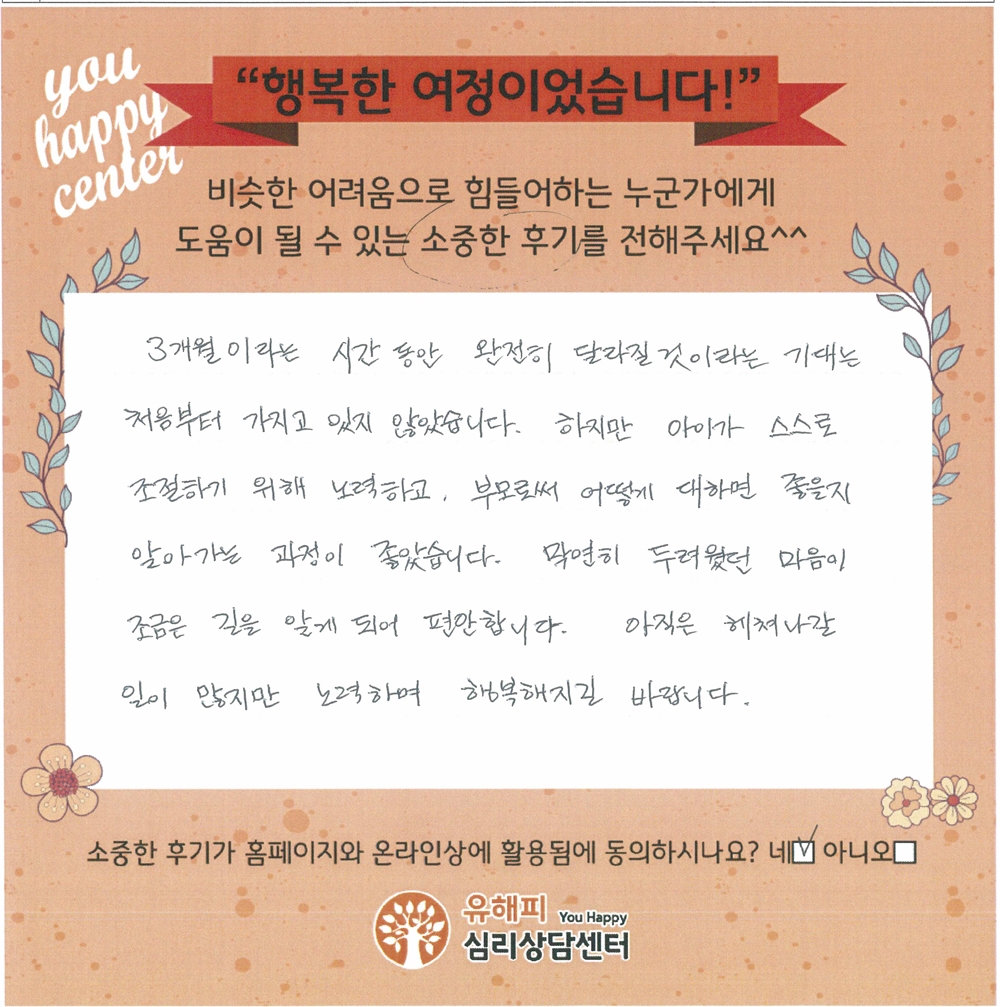 you
happy
center
“행복한 여정이었습니다!”
비슷한 어려움으로 힘들어하는 누군가에게
도움이 될 수 있는 소중한 후기를 전해주세요^^
3개월이라는 시간 동안 완전히 달라질 것이라는 기대는
처음부터 가지고 있지 않았습니다. 하지만 아이가 스스로
조절하기 위해 노력하고, 부모로써 어떻게 대하면 좋을지
알아가는 과정이 좋았습니다. 막연히 두려웠던 마음이
조금은 길을 알게 되어 편안합니다. 아직은 헤쳐나갈
일이 많지만 노력하며 행복해지길 바랍니다.
소중한 후기가 홈페이지와 온라인상에 활용됨에 동의하시나요? 네☑ 아니오☐
유해피 You Happy
심리상담센터